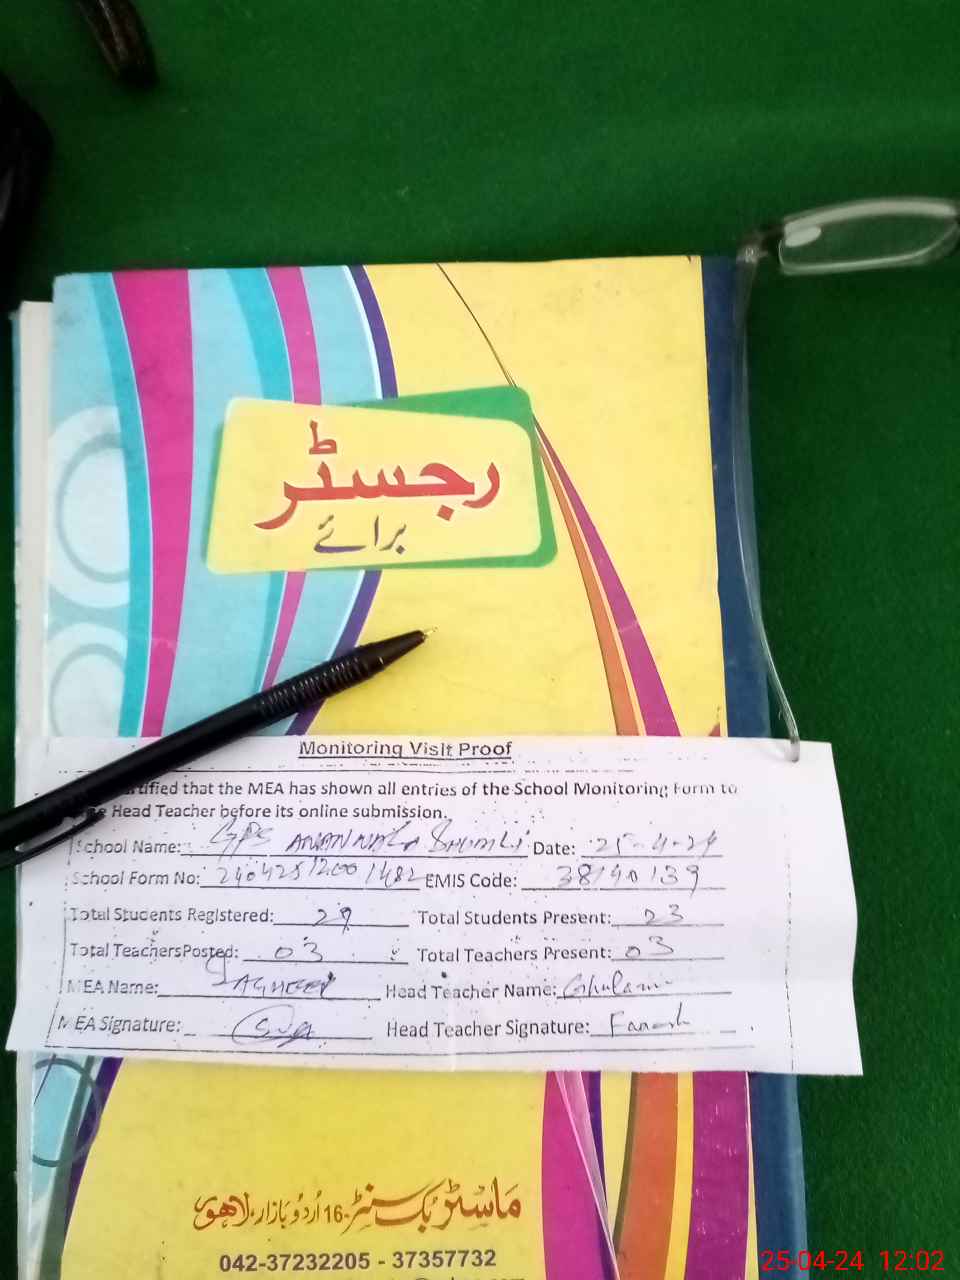 رجسٹر
برائے
Monitoring Visit Proof
tified that the MEA has shown all entries of the School Monitoring Form to
Head Teacher before its online submission.
School Name: GPS Date: 25-4-24
School Form No: EMIS Code: 38140139
Total Students Registered: 29 Total Students Present: 23
Total TeachersPosted: 03 Total Teachers Present: 03
MEA Name: Head Teacher Name: Ghulam
MEA Signature: Head Teacher Signature:
ماسٹر بک سنٹر 16-اُردُو بازار، لاہور
042-37232205 - 37357732
25-04-24 12:02